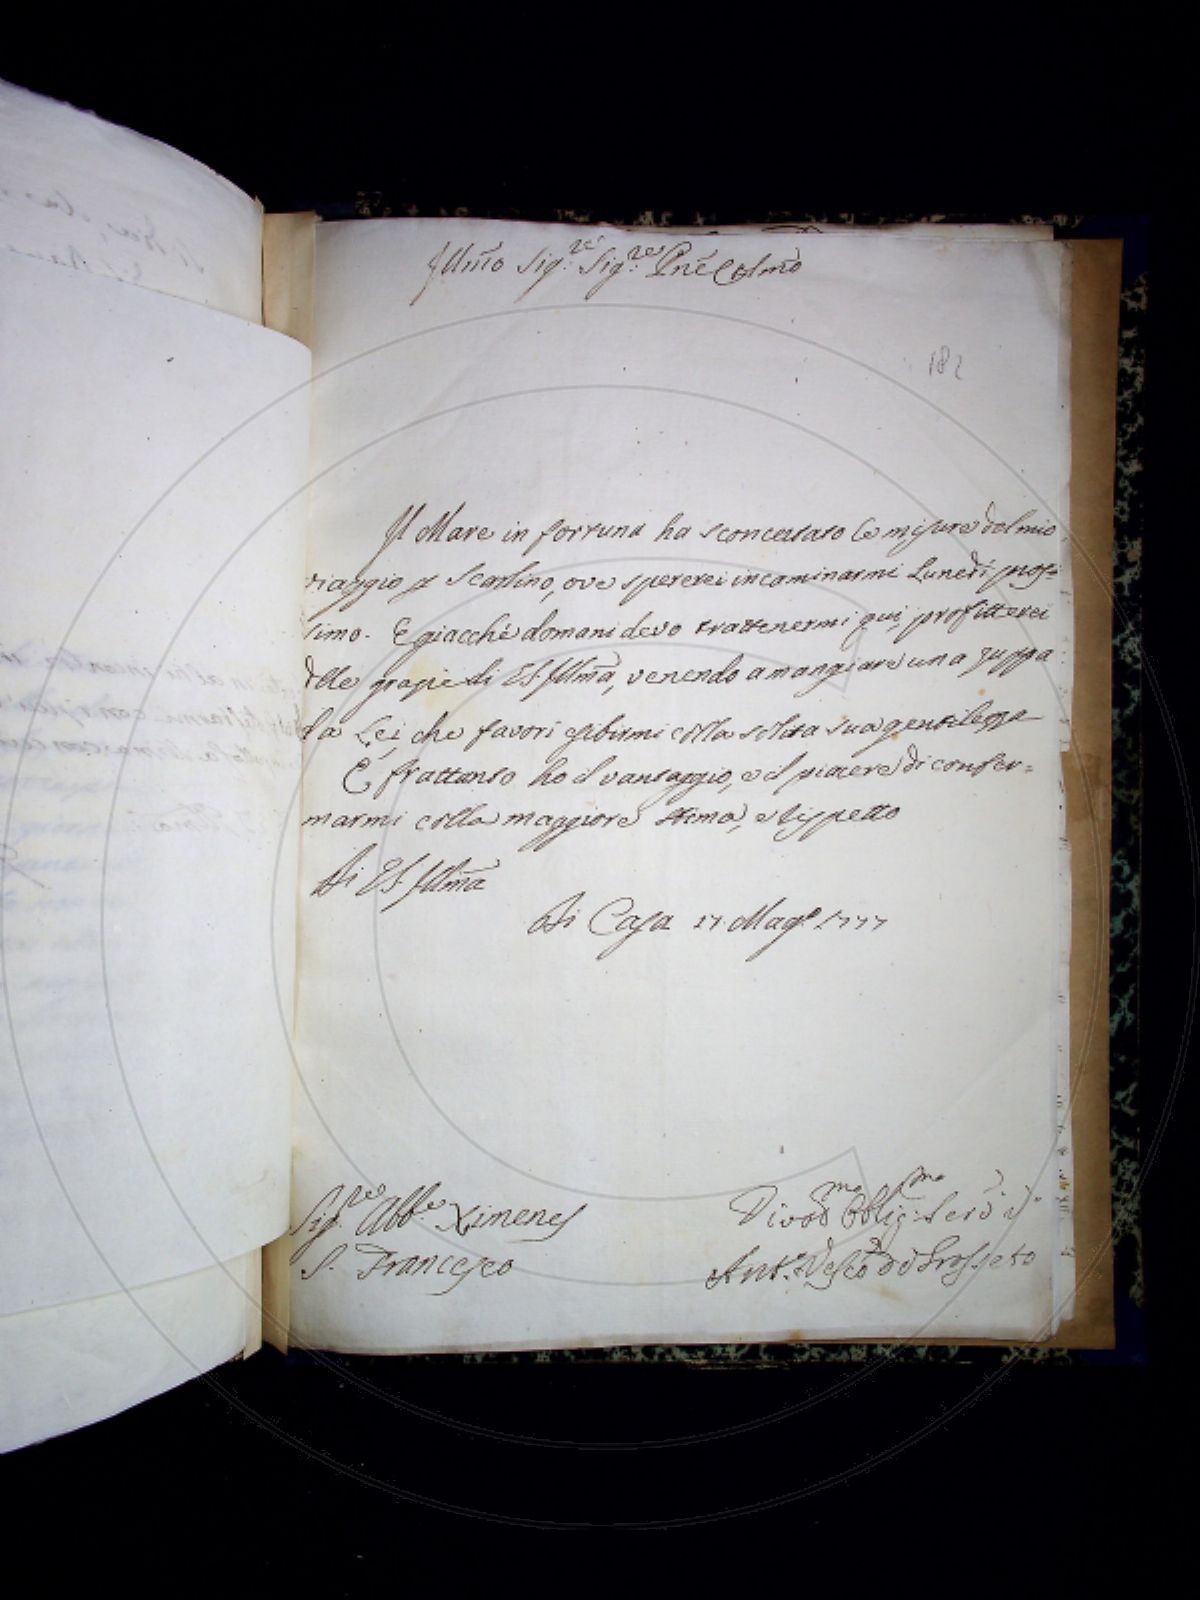 Illmo Sig:re Sig:re Pne Colmo
182
Il Mare in fortuna ha sconcertato le misure del mio
viaggio p Scarlino, ove spererei incaminarmi Lunedì pros=
simo. E giacchè domani devo trattenermi qui, profitterei
delle grazie di VS. Illma, venendo a mangiare una zuppa
da Lei, che favorì esibirmi colla solita sua gentilezza
E frattanto ho il vantaggio, e il piacere di confer=
marmi colla maggiore stima, e rispetto
Di VS. Illma
Di Casa 17. Mago. 1777
Sig.re Abb.e Ximenes
S. Francesco
Divo:mo Obblig:mo Serv
Ant.o Vesco di Grosseto